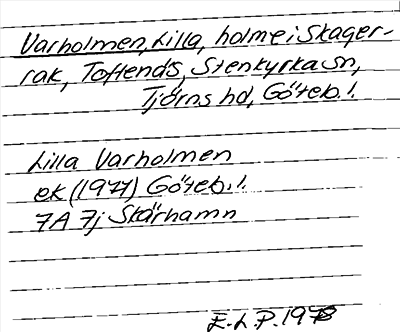 Varholmen, Lilla, holme i Skager-
rak, Toftenäs, Stenkyrka sn,
Tjörns hd, Göteb. l.
Lilla Varholmen
ek (1977) Göteb. l.
7A 7j Skärhamn
E.L.P. 1978